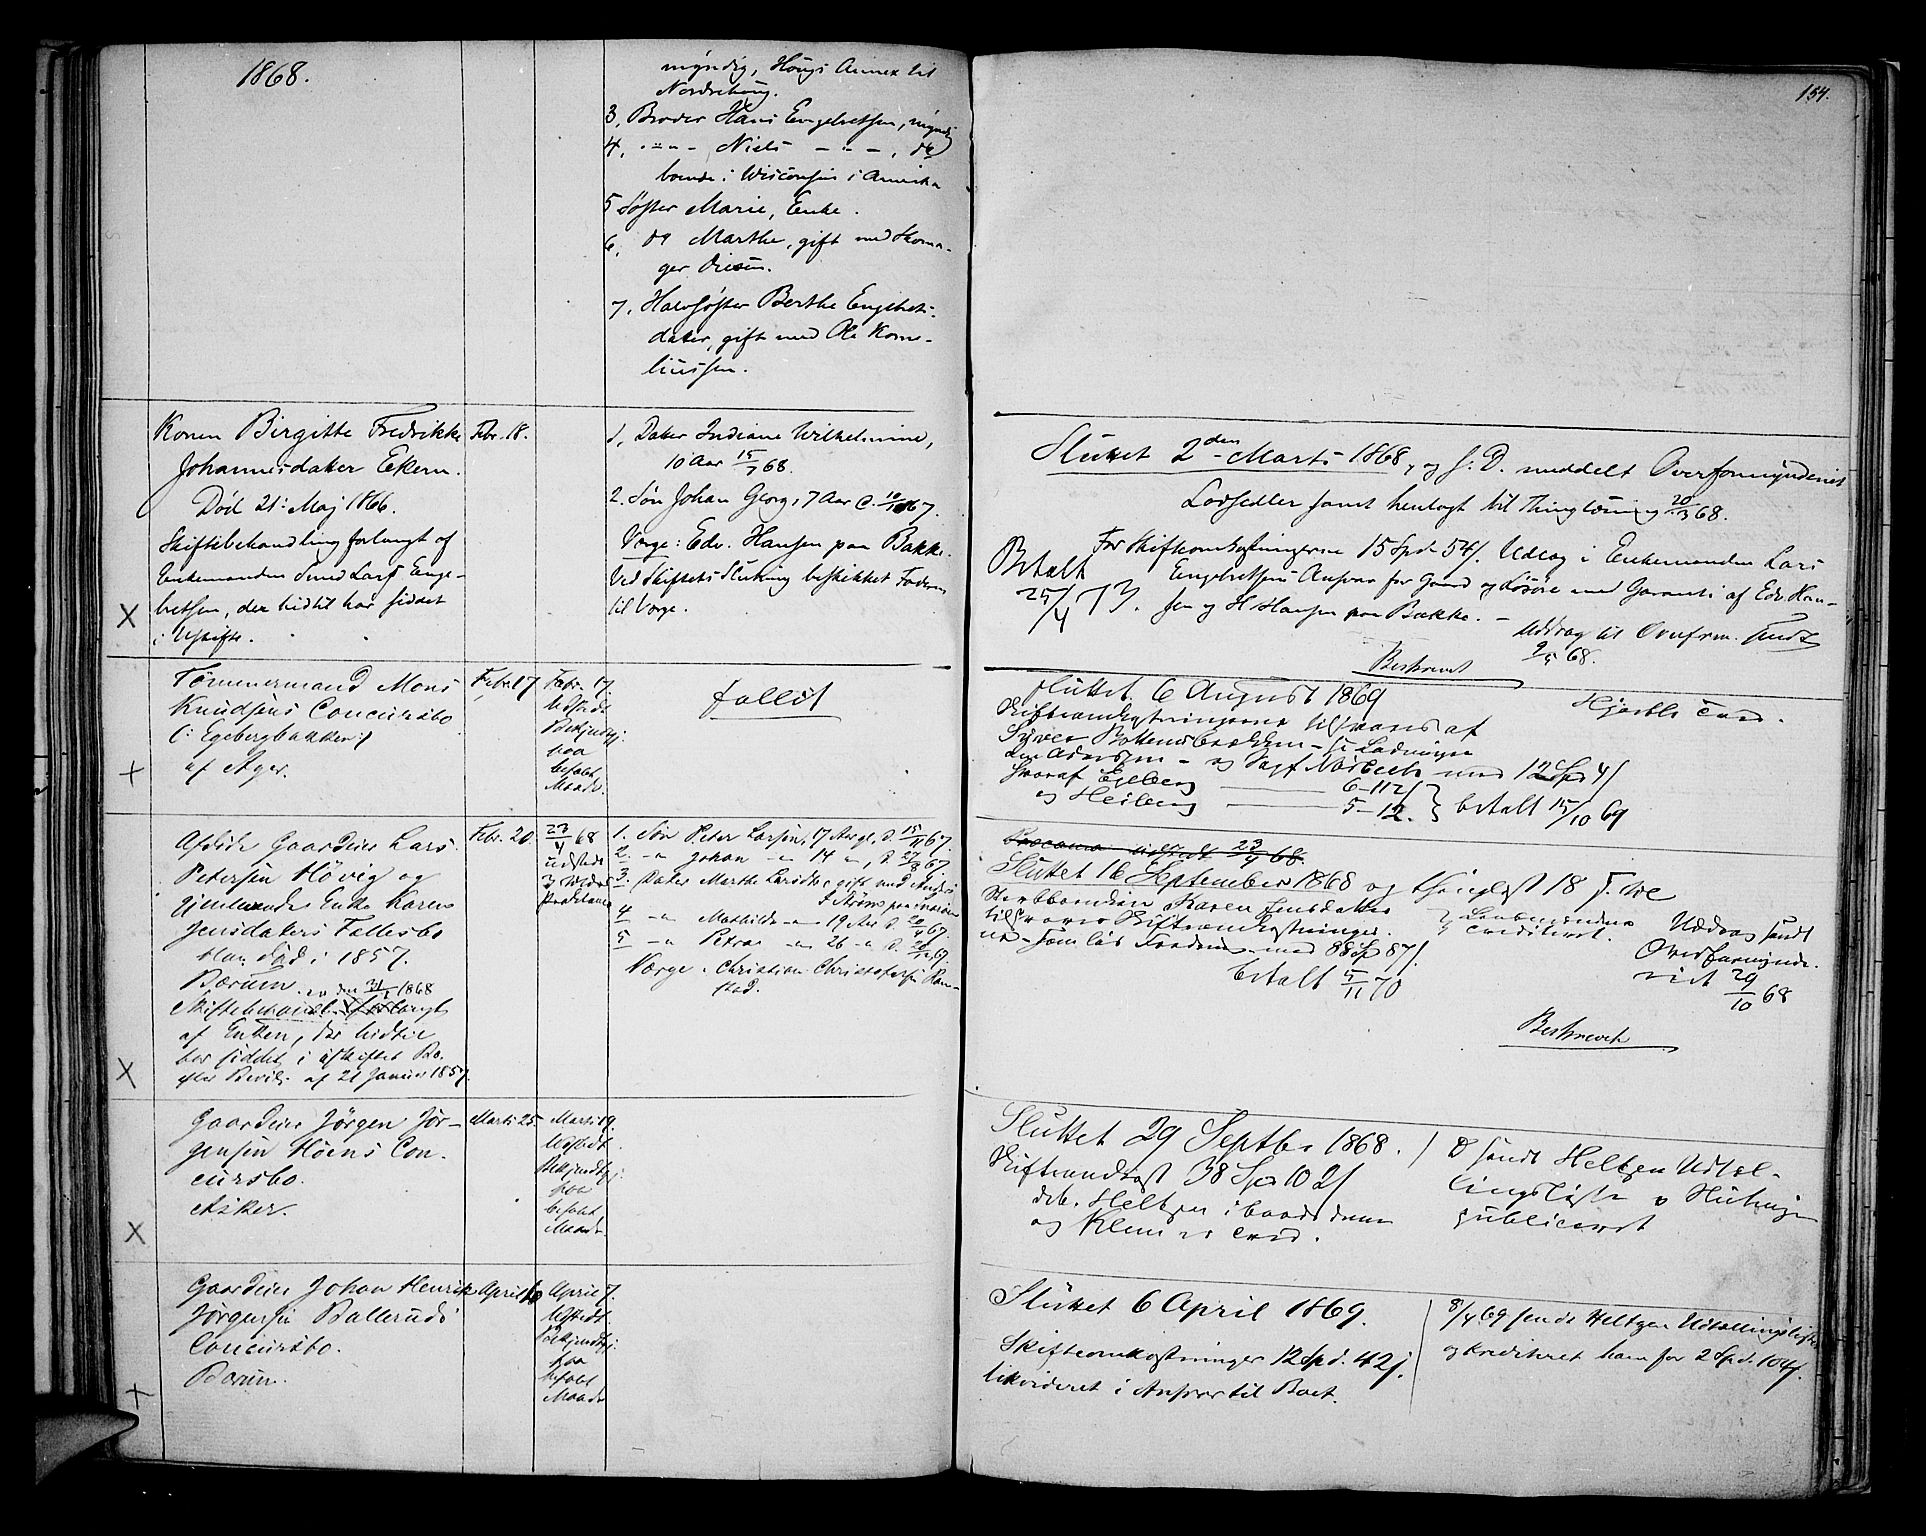 1868.
myndig, Hougs Annex til
Nordrehoug.
3, Broder Hans Engebretsen, myndig
4, -"- Niels -"-, do
boende i Wisconsin i Amerika
5 Søster Marie, Enke.
6, do Marthe, gift med
7, Halvsøster Berthe Engebrets-
datter, gift med Ole Korne-
liussen.
Konen Birgitte Fredrikke
Johannesdatter Ekern.
Død 21: Maj 1866.
Skiftebehandling forlangt af
Enkemanden Smed Lars Enge-
bretsen, der hidtil har siddet
i Uskifte.
X
Febr. 18.
1, Datter Indiane Wilhelmine,
10 Aar 15/7 68.
2. Søn Johan Georg, 7 Aar
Værge: Edv. Hansen paa Bakke.
Ved Skiftets Slutning beskikket Faderen
til Værge.
Tømmermand Mons
Knudsens Concursbo
(: Egebergbakken:)
af Ager.
+
Febr. 17
Febr. 17.
Udstedt
Bekjendtgj.
paa
befalet
Maade.
fallit
Afdøde Gaardeier Lars
Petersen Høvig og
gjenlevende Enke Karen
Jensdatters Fællesbo
Han død i 1857.
Bærum. den 31/1 1868
Skiftebehandl. forlangt
af Enken, der hidtil
har siddet i uskiftet Bo
efter Bevilg. af 21 Januar 1857.
X
Febr. 20.
23/4 68
udstedt
Proclama
1. Søn Peter Larsen, 17 Aar gl. d. 15/11 67.
2. -"- Johan -"- 14 -"-, d.
3. Datter Marthe Larsdtr gift med Anders
4 -"- Mathilde -"- 19 Aar d. 20/4 67.
5 -"- Petra -"- 26 -"- d.
Værge: Christian Christofersen Ram-
stad.
Gaardeier Jørgen Jør-
gensen Høens Con-
cursbo.
Asker.
X
Marts 25.
Marts 19.
Udstedt
Bekjendtgj.
paa
befalet
Maade.
Gaardeier Johan Henrik
Jørgensen Ballerud's
Concursbo.
Bærum.
+
April 10
April 7.
Udstedt
Bekjendtgj.
paa
befalet
Maade
154.
Sluttet 2den Marts 1868, og s. D. meddelt Overformynderiet
Lodsedler samt henlagt til Thinglæsning 20/3 68.
For Skifteomkostningerne 15 Spd 54 s. Udlæg i Enkemanden Lars
Engebretsens Ansvar for Gaard og Løsøre med Garanti af Edv. Han-
sen og H. Hansen paa Bakke. -
Betalt
25/4 73.
Uddrag til Overform. sendt
9/5 68.
Beskrevet
Sluttet 6 August 1869
Skifteomkostningerne tilsvares af
og Sagf. med 12 Spd 4 s
hvoraf Egeberg 6-112 s
og Heiberg 5-12. } betalt 15/10 69
Hjorth cred.
Proclama udstedt 23/4 68.
Sluttet 16 September 1868 og thinglæst 18 s. Md
Stervboenken Karen Jensdatter
tilsvarer Skifteomkostninger.
ne - som løb med 88 Sp 87 s.
betalt 5/11 70
crediteret.
Uddrag sendt
Overformynde-
riet 29/10 68
Beskrevet
Sluttet 29 Septbr 1868.
Skifteomkost 38 Spd 102 s
deb. Heltzen i
og Klem er cred.
D sendt Heltzen Udtæl-
lingsliste o Slutningen
publiceret
Sluttet 6 April 1869.
Skifteomkostninger 12 Spd. 42 s.
likvideret i Ansvar til Boet.
8/4 69 sendt Heltzen Udtællingsliste
og krediteret ham for 2 Spd. 104 s.